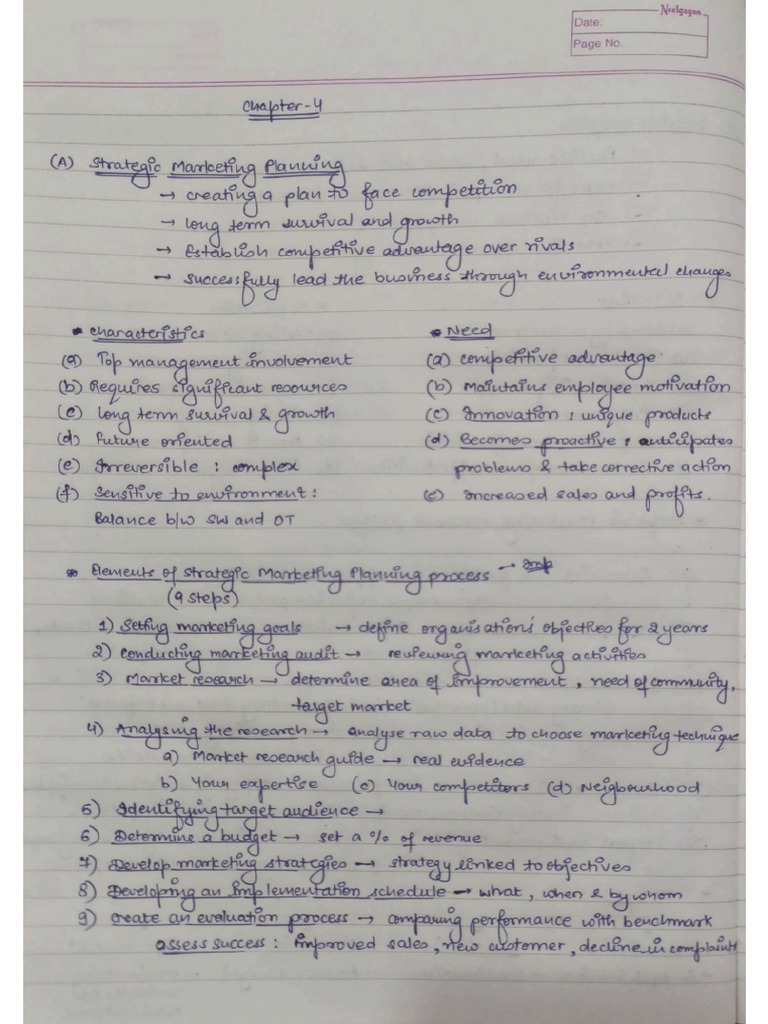 Neelgagan
Date:
Page No.
Chapter-4
(A) Strategic Marketing Planning
→ creating a plan to face competition
→ long term survival and growth
→ Establish competitive advantage over rivals
→ successfully lead the business through environmental changes
• Characteristics
(a) Top management involvement
(b) Requires significant resources
(c) long term survival & growth
(d) Future oriented
(e) Irreversible : complex
(f) Sensitive to environment :
Balance b/w SW and OT
• Need
(a) competitive advantage
(b) Maintains employee motivation
(c) Innovation : unique products
(d) Becomes proactive : anticipates
problems & take corrective action
(e) increased sales and profits.
• Elements of Strategic Marketing Planning process → Imp
(9 steps)
1) Setting marketing goals → define organisation's objectives for 2 years
2) Conducting marketing audit → reviewing marketing activities
3) Market research → determine area of improvement, need of community,
target market
4) Analysing the research → analyse raw data to choose marketing technique
a) Market research guide → real evidence
b) Your expertise (c) Your competitors (d) Neigbourhood
5) Identifying target audience →
6) Determine a budget → set a % of revenue
7) Develop marketing strategies → strategy linked to objectives
8) Developing an implementation schedule → what, when & by whom
9) Create an evaluation process → comparing performance with benchmark
assess success : improved sales, new customer, decline in complaint